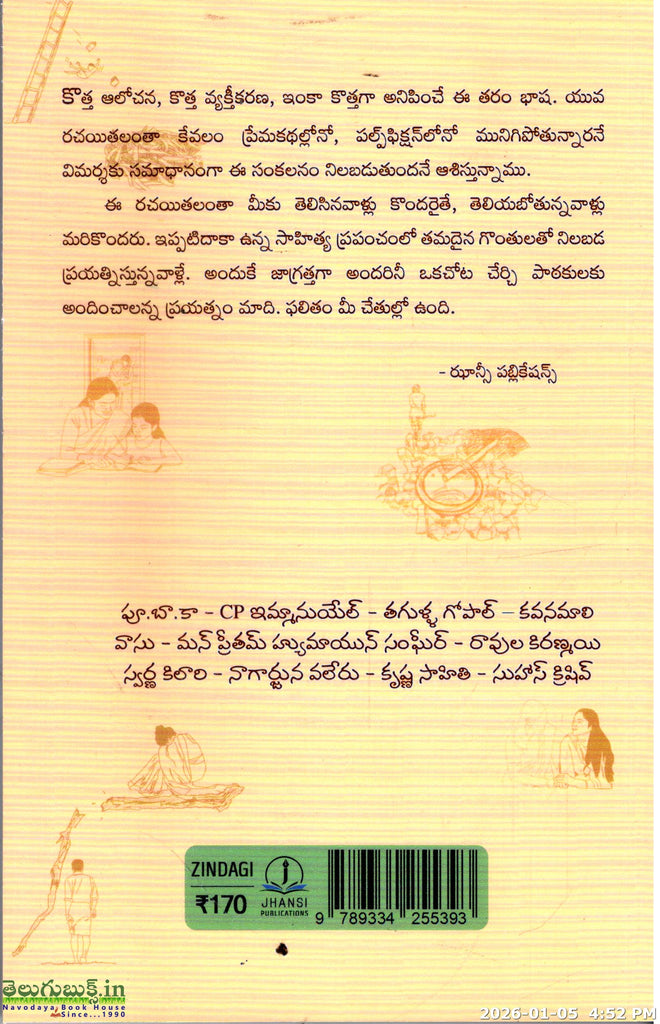 కొత్త ఆలోచన, కొత్త వ్యక్తీకరణ, ఇంకా కొత్తగా అనిపించే ఈ తరం భాష. యువ
రచయితలంతా కేవలం ప్రేమకథల్లోనో, పల్ప్‌ఫిక్షన్‌లోనో మునిగిపోతున్నారనే
విమర్శకు సమాధానంగా ఈ సంకలనం నిలబడుతుందనే ఆశిస్తున్నాము.
ఈ రచయితలంతా మీకు తెలిసినవాళ్లు కొందరైతే, తెలియబోతున్నవాళ్లు
మరికొందరు. ఇప్పటిదాకా ఉన్న సాహిత్య ప్రపంచంలో తమదైన గొంతులతో నిలబడ
ప్రయత్నిస్తున్నవాళ్లే. అందుకే జాగ్రత్తగా అందరినీ ఒకచోట చేర్చి పాఠకులకు
అందించాలన్న ప్రయత్నం మాది. ఫలితం మీ చేతుల్లో ఉంది.
- ఝాన్సీ పబ్లికేషన్స్
పూ.బా.కా - CP ఇమ్మానుయేల్ - తగుళ్ళ గోపాల్ - కవనమాలి
వాసు - మన్ ప్రీతమ్ హ్యుమాయున్ సంఘీర్ - రావుల కిరణ్మయి
స్వర్ణ కిలారి - నాగార్జున వలేరు - కృష్ణ సాహితి - సుహాస్ క్రిషివ్
ZINDAGI
₹170
JHANSI
PUBLICATIONS
9 789334 255393
తెలుగుబుక్స్.in
Navodaya Book House
Since...1990
2026-01-05 4:52 PM